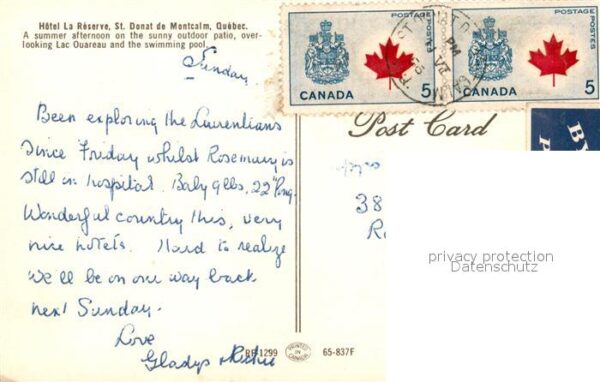 Hôtel La Réserve, St. Donat de Montcalm, Québec.
A summer afternoon on the sunny outdoor patio, over-
looking Lac Ouareau and the swimming pool.
Sunday
Been exploring the Laurentians
Since Friday whilst Rosemary is
still in hospital. Baby 9lbs, 22" long.
Wonderful country this, very
nice hotels. Hard to realize
we'll be on our way back
next Sunday.
Love
Gladys
RF-1299
PRINTED IN CANADA
65-837F
Post Card
POSTAGE POSTES
CANADA 5
POSTAGE POSTES
CANADA 5
PM
BY
P
38
R
privacy protection
Datenschutz